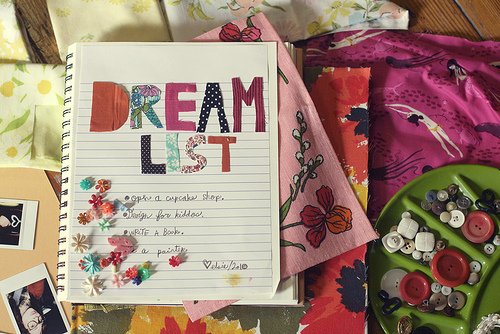 DREAM
LIST
open a cupcake shop.
Design for kiddos.
WRITE A BOOK.
a painting